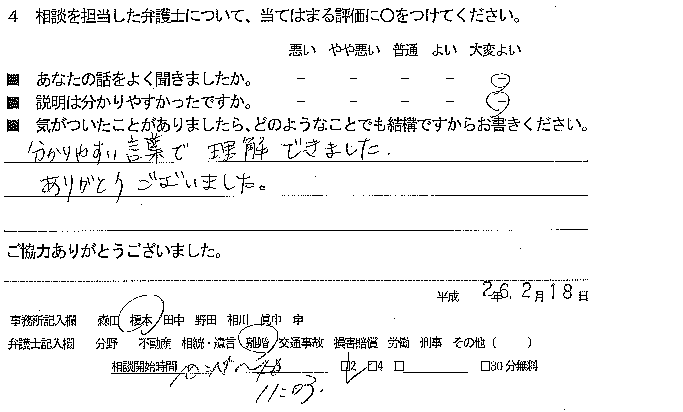 4 相談を担当した弁護士について、当てはまる評価に○をつけてください。
悪い やや悪い 普通 よい 大変よい
■ あなたの話をよく聞きましたか。 － － － － －
■ 説明は分かりやすかったですか。 － － － － －
■ 気がついたことがありましたら、どのようなことでも結構ですからお書きください。
分かりやすい言葉で 理解 できました.
ありがとう ございました。
ご協力ありがとうございました。
平成 26年 2月18日
事務所記入欄 森田 榎本 田中 野田 相川 眞中 幸
弁護士記入欄 分野 不動産 相続・遺言 離婚 交通事故 損害賠償 労働 刑事 その他（ ）
相談開始時間 □2 □4 □ □30分無料
11:03.